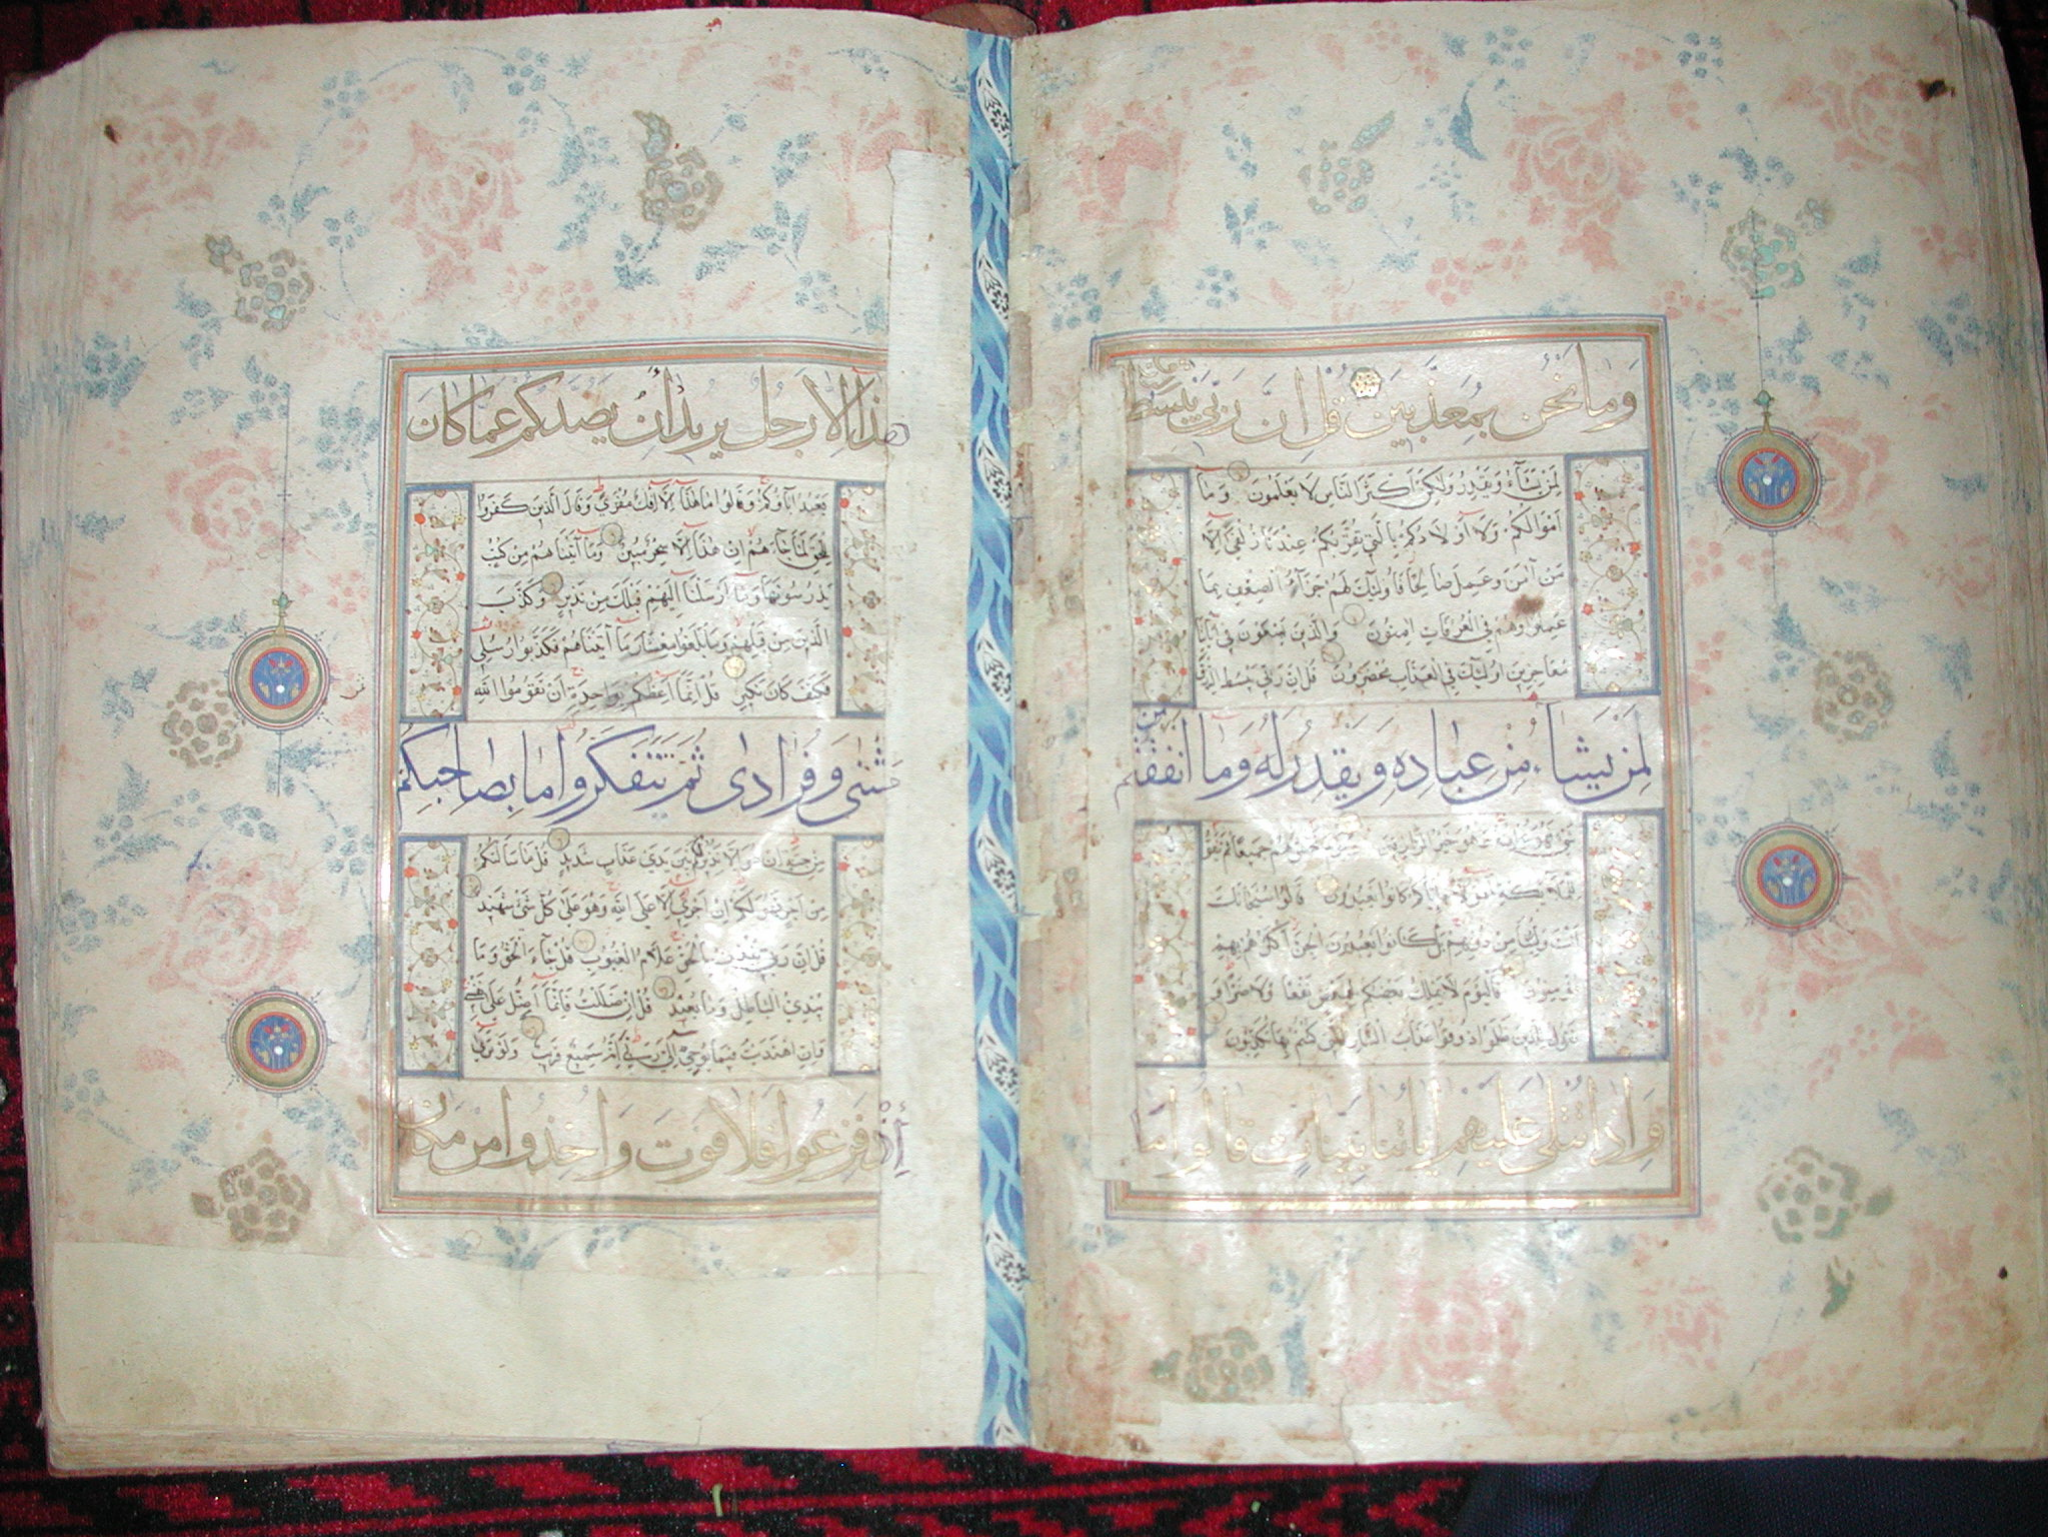 وَمَا نَحْنُ بِمُعَذَّبِينَ قُلْ اِنَّ رَبِّي يَبْسُطُ
لِمَنْ يَشَآءُ وَيَقْدِرُ وَلٰكِنَّ اَكْثَرَ النَّاسِ لَا يَعْلَمُونَ وَمَآ
اَمْوَالُكُمْ وَلَآ اَوْلَادُكُمْ بِالَّتِي تُقَرِّبُكُمْ عِنْدَنَا زُلْفٰى اِلَّا
مَنْ آمَنَ وَعَمِلَ صَالِحًا فَاُولٰئِكَ لَهُمْ جَزَآءُ الضِّعْفِ بِمَا
عَمِلُوا وَهُمْ فِي الْغُرُفَاتِ اٰمِنُونَ وَالَّذِينَ يَسْعَوْنَ فِي آيَاتِنَا
مُعَاجِزِينَ اُولٰئِكَ فِي الْعَذَابِ مُحْضَرُونَ قُلْ اِنَّ رَبِّي يَبْسُطُ الرِّزْقَ
لِمَنْ يَشَاءُ مِنْ عِبَادِهِ وَيَقْدِرُ لَهُ وَمَا اَنْفَقْتُمْ مِنْ
شَيْءٍ فَهُوَ وَهُوَ خَيْرُ الرَّازِقِينَ جَمِيعًا ثُمَّ يَقُولُ
لِلْمَلَائِكَةِ اَهٰؤُلَاءِ اِيَّاكُمْ كَانُوا يَعْبُدُونَ قَالُوا سُبْحَانَكَ
اَنْتَ وَلِيُّنَا مِنْ دُونِهِمْ بَلْ كَانُوا يَعْبُدُونَ الْجِنَّ اَكْثَرُهُمْ بِهِمْ
مُؤْمِنُونَ فَالْيَوْمَ لَا يَمْلِكُ بَعْضُكُمْ لِبَعْضٍ نَفْعًا وَلَا ضَرًّا وَ
نَقُولُ لِلَّذِينَ ظَلَمُوا ذُوقُوا عَذَابَ النَّارِ الَّتِي كُنْتُمْ بِهَا تُكَذِّبُونَ
وَاِذَا تُتْلٰى عَلَيْهِمْ اٰيَاتُنَا بَيِّنَاتٍ قَالُوا مَا
هٰذَا اِلَّا رَجُلٌ يُرِيدُ أَنْ يَصُدَّكُمْ عَمَّا كَانَ
يَعْبُدُ اٰبَاؤُكُمْ وَقَالُوا مَا هٰذَآ اِلَّآ اِفْكٌ مُفْتَرًى وَقَالَ الَّذِينَ كَفَرُوا
لِلْحَقِّ لَمَّا جَاءَهُمْ اِنْ هٰذَآ اِلَّا سِحْرٌ مُبِينٌ وَمَآ آتَيْنَاهُمْ مِنْ كُتُبٍ
يَدْرُسُونَهَا وَمَآ اَرْسَلْنَآ اِلَيْهِمْ قَبْلَكَ مِنْ نَذِيرٍ وَكَذَّبَ
الَّذِينَ مِنْ قَبْلِهِمْ وَمَا بَلَغُوا مِعْشَارَ مَآ آتَيْنَاهُمْ فَكَذَّبُوا رُسُلِي
فَكَيْفَ كَانَ نَكِيرِ قُلْ اِنَّمَآ اَعِظُكُمْ بِوَاحِدَةٍ اَنْ تَقُومُوا لِلّٰهِ
مَثْنٰى وَفُرَادٰى ثُمَّ تَتَفَكَّرُوا مَا بِصَاحِبِكُمْ
مِنْ جِنَّةٍ اِنْ هُوَ اِلَّا نَذِيرٌ لَكُمْ بَيْنَ يَدَيْ عَذَابٍ شَدِيدٍ قُلْ مَا سَاَلْتُكُمْ
مِنْ اَجْرٍ فَهُوَ لَكُمْ اِنْ اَجْرِيَ اِلَّا عَلَى اللّٰهِ وَهُوَ عَلٰى كُلِّ شَيْءٍ شَهِيدٌ
قُلْ اِنَّ رَبِّي يَقْذِفُ بِالْحَقِّ عَلَّامُ الْغُيُوبِ قُلْ جَآءَ الْحَقُّ وَمَا
يُبْدِئُ الْبَاطِلُ وَمَا يُعِيدُ قُلْ اِنْ ضَلَلْتُ فَاِنَّمَآ اَضِلُّ عَلٰى نَفْسِي
وَاِنِ اهْتَدَيْتُ فَبِمَا يُوحِي اِلَيَّ رَبِّي اِنَّهُ سَمِيعٌ قَرِيبٌ وَلَوْ تَرٰى
اِذْ فَزِعُوا فَلَا فَوْتَ وَاُخِذُوا مِنْ مَكَانٍ